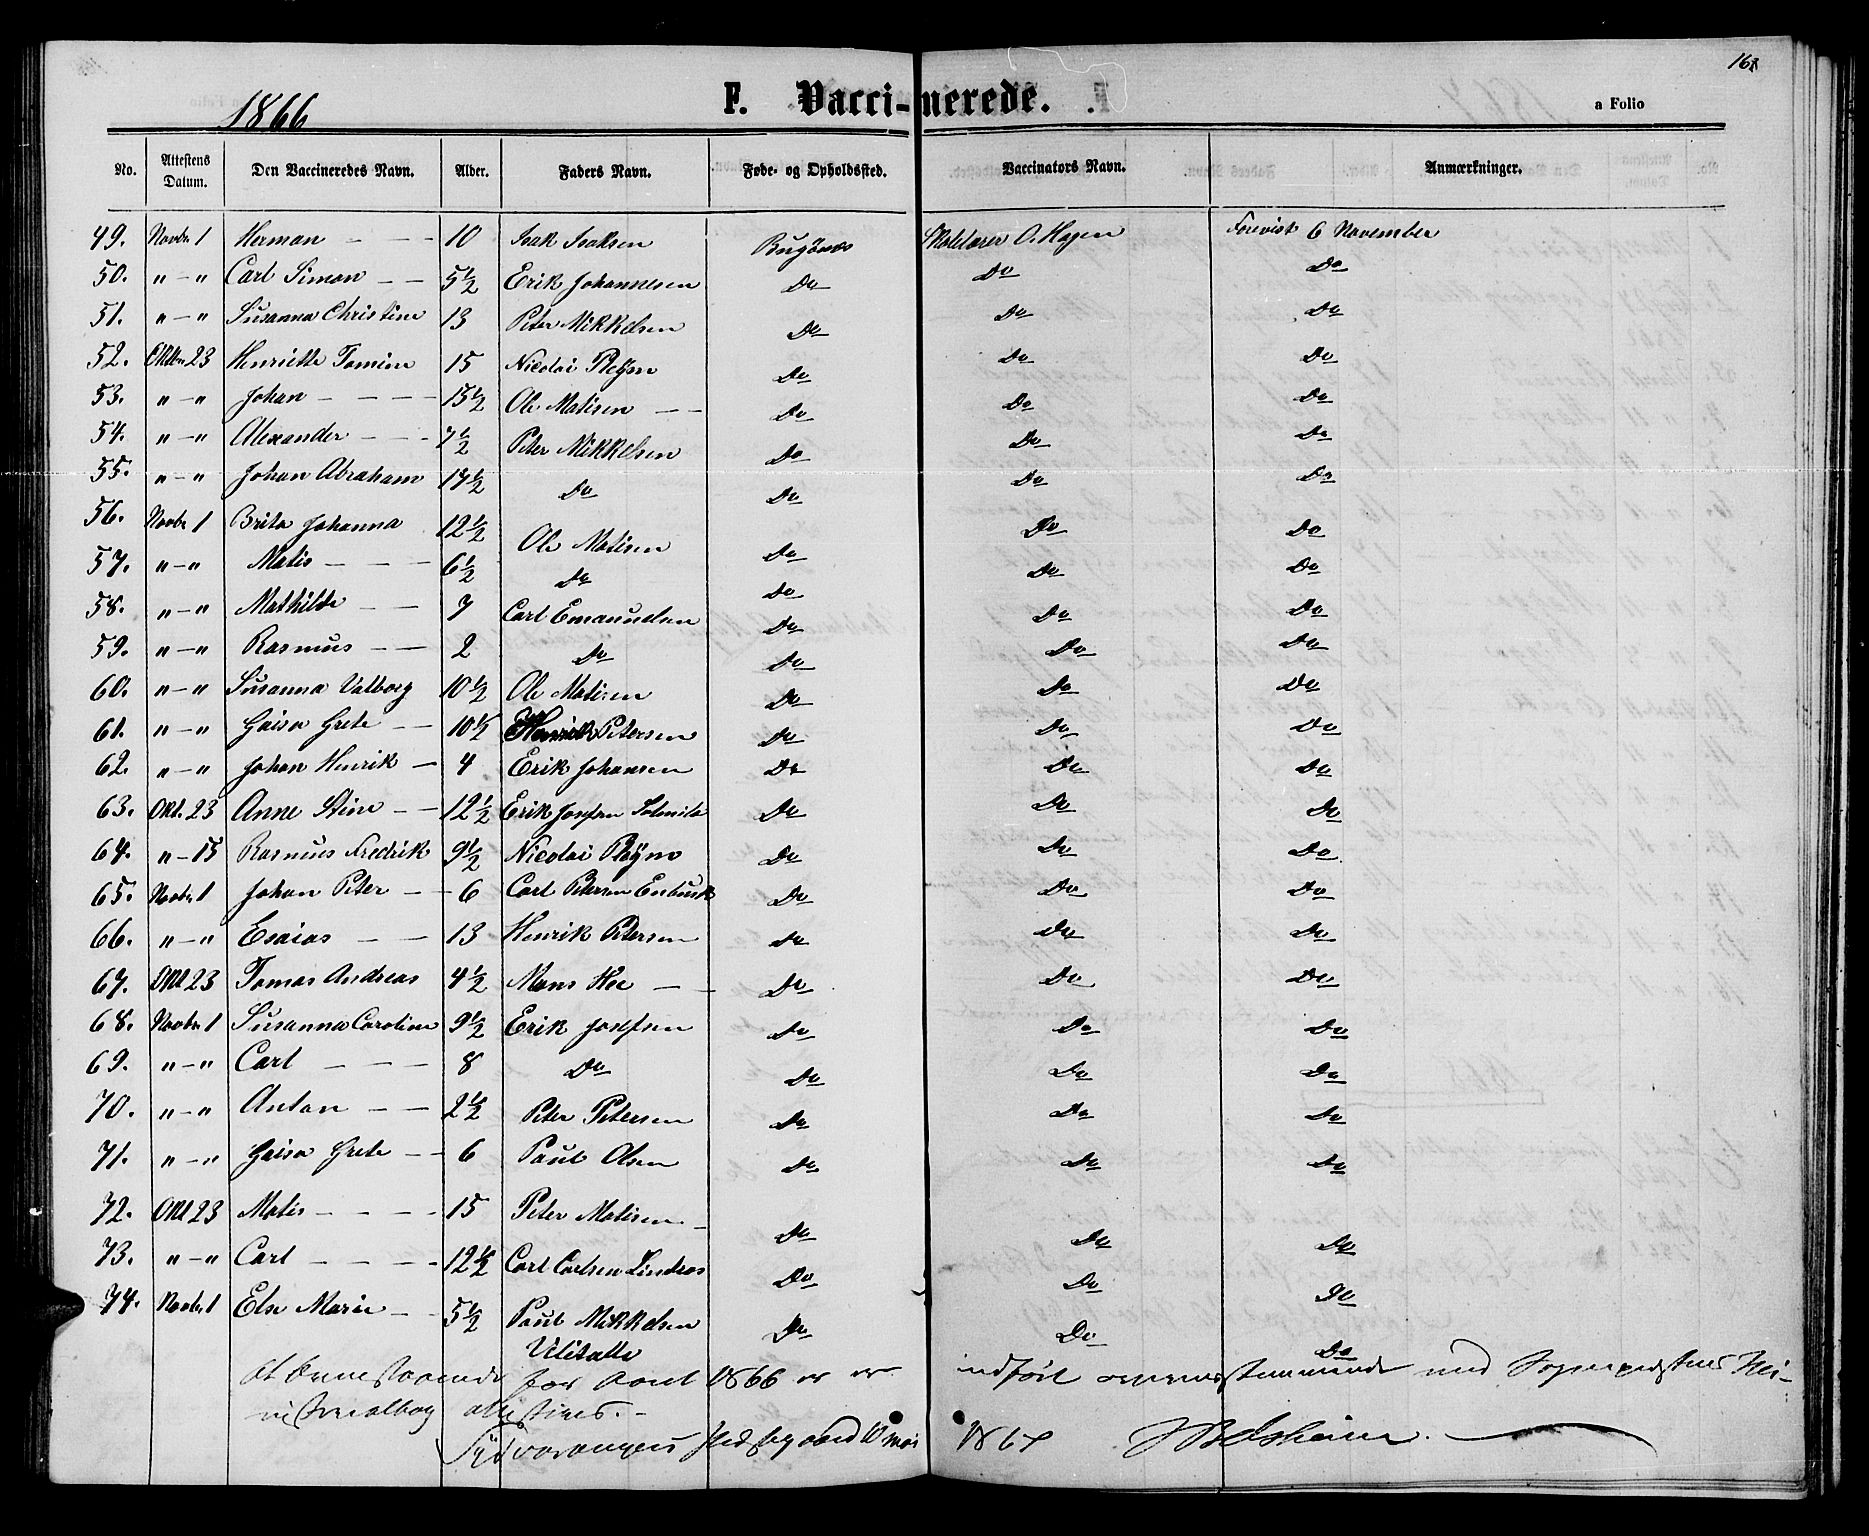 168
1866 F. Vacci-nerede. a Folio
No. Attestens Datum. Den Vaccineredes Navn. Alder. Faders Navn. Føde- og Opholdssted. Vaccinators Navn. Anmærkninger.
49. Novbr 1 Herman - - - 10 Isak Isaksen Bugönæs Skolelærer O. Hagen Forevist 6 November
50. " - " Carl Simon - - 5 1/2 Erik Johannesen Do Do Do
51. " - " Susanna Christine 13 Peter Mikkelsen Do Do Do
52. Oktbr 23 Henriette Tomine 15 Nicolai Pleÿm Do Do Do
53. " - " Johan - - - - 15 1/2 Ole Matisen - - Do Do Do
54. " - " Alexander - - - 7 1/2 Peter Mikkelsen Do Do Do
55. " - " Johan Abraham 17 1/2 Do Do Do Do
56. Novbr 1 Brita Johanna 12 1/2 Ole Matisen Do Do Do
57. " - " Matis - - - 6 1/2 Do Do Do Do
58. " - " Mathilde - - 7 Carl Emanuelsen Do Do Do
59. " - " Rasmus - - 2 Do Do Do Do
60. " - " Susanna Valborg 10 1/2 Ole Matisen Do Do Do
61. " - " Gaisa Grete - - 10 1/2 Henrik Petersen Do Do Do
62. " - " Johan Henrik - 4 Erik Johansen Do Do Do
63. Okt. 23 Anne Stine - - 12 1/2 Erik Josefsen Do Do Do
64. " - 15 Rasmus Fredrik 9 1/2 Nicolai Pleÿm Do Do Do
65. Novbr 1 Johan Peter - - 6 Carl Petersen Enbusk Do Do Do
66. " - " Esaias - - 13 Henrik Petersen Do Do Do
67. Okt 23 Tomas Andreas 4 1/2 Mons - - Do Do Do
68. Novbr 1 Susanna Caroline 9 1/2 Erik Josefsen Do Do Do
69. " - " Carl - - - 8 Do Do Do Do
70. " - " Anton - - 2 1/2 Peter Petersen Do Do Do
71. " - " Gaisa Grete - - 6 Paul Olsen Do Do Do
72. Okt 23 Matis - - - - 15 Peter Matisen - Do Do Do
73. " - " Carl - - - - 12 1/2 Carl Carlsen Lindros Do Do Do
74. Novbr 1 Else Marie - - 5 1/2 Paul Mikkelsen Do Do Do
At for Aaret 1866 er indfört overensstemmende med Sognepræstens Mi-
nisterialbog attesteres. -
Sydvarangers Præstegaard 10 Mai 1867